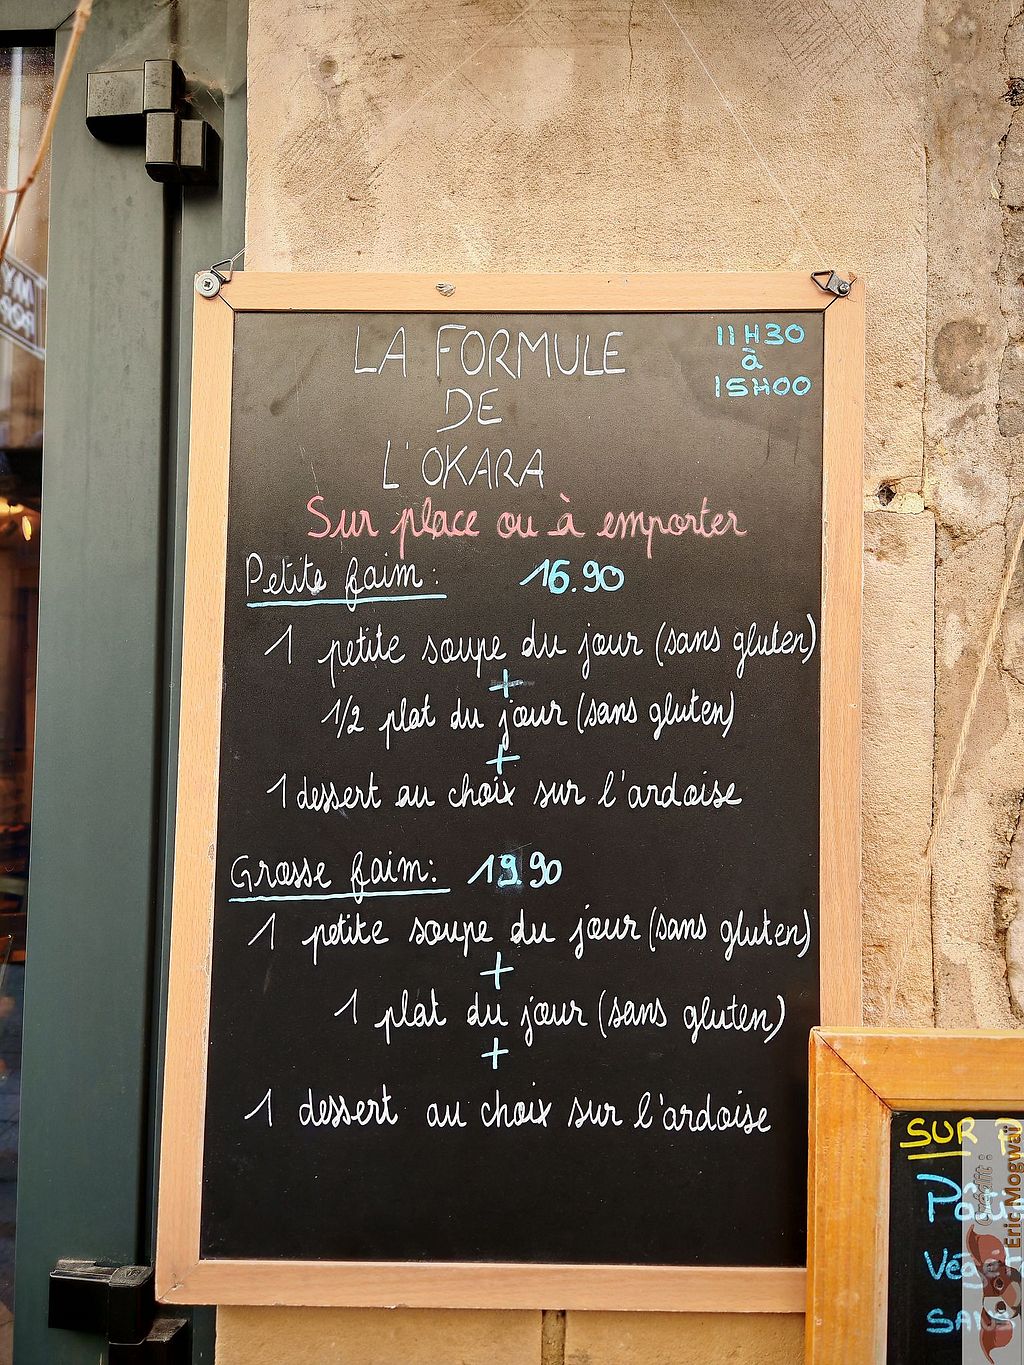 LA FORMULE
DE
L'OKARA
11H30
à
15H00
Sur place ou à emporter
Petite faim : 16.90
1 petite soupe du jour (sans gluten)
+
1/2 plat du jour (sans gluten)
+
1 dessert au choix sur l'ardoise
Grosse faim : 19.90
1 petite soupe du jour (sans gluten)
+
1 plat du jour (sans gluten)
+
1 dessert au choix sur l'ardoise
SUR P
SANS
Crédit :
Eric Mogwai